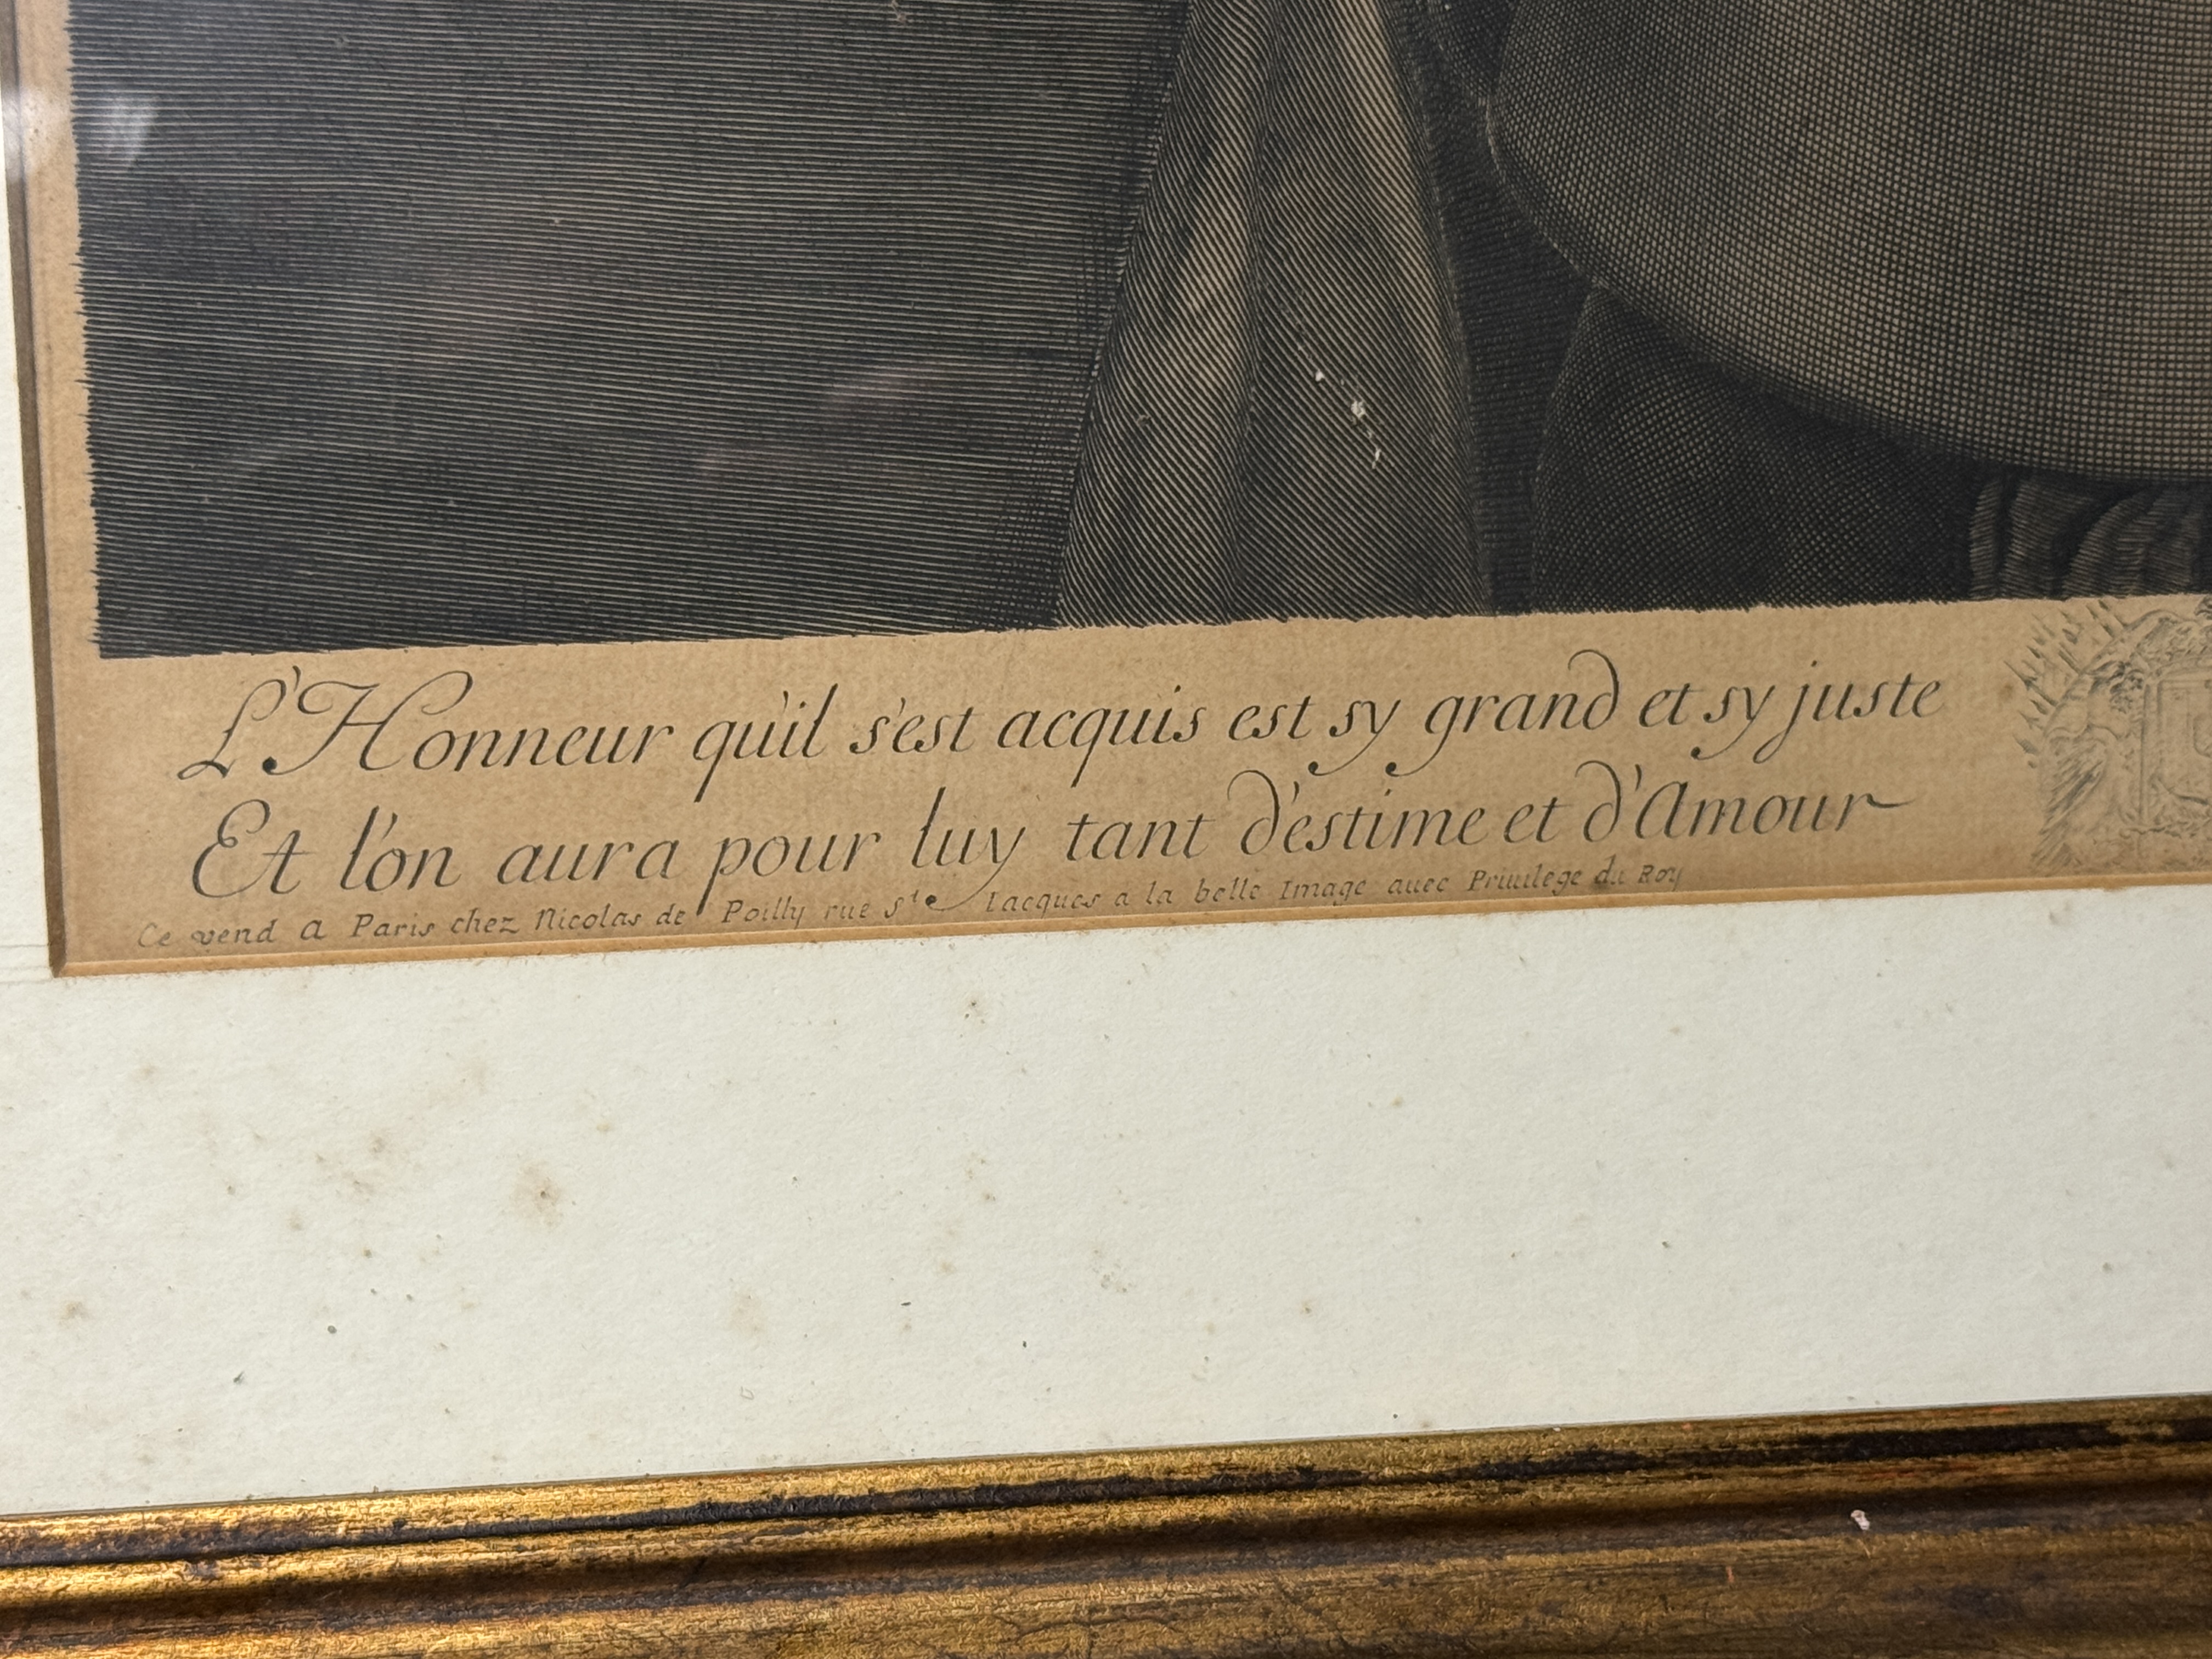 L'Honneur qu'il s'est acquis est sy grand et sy juste
Et l'on aura pour luy tant d'estime et d'Amour
Ce vend A Paris chez Nicolas de Poilly rue St. Iacques a la belle Image auec Priuilege du Roy